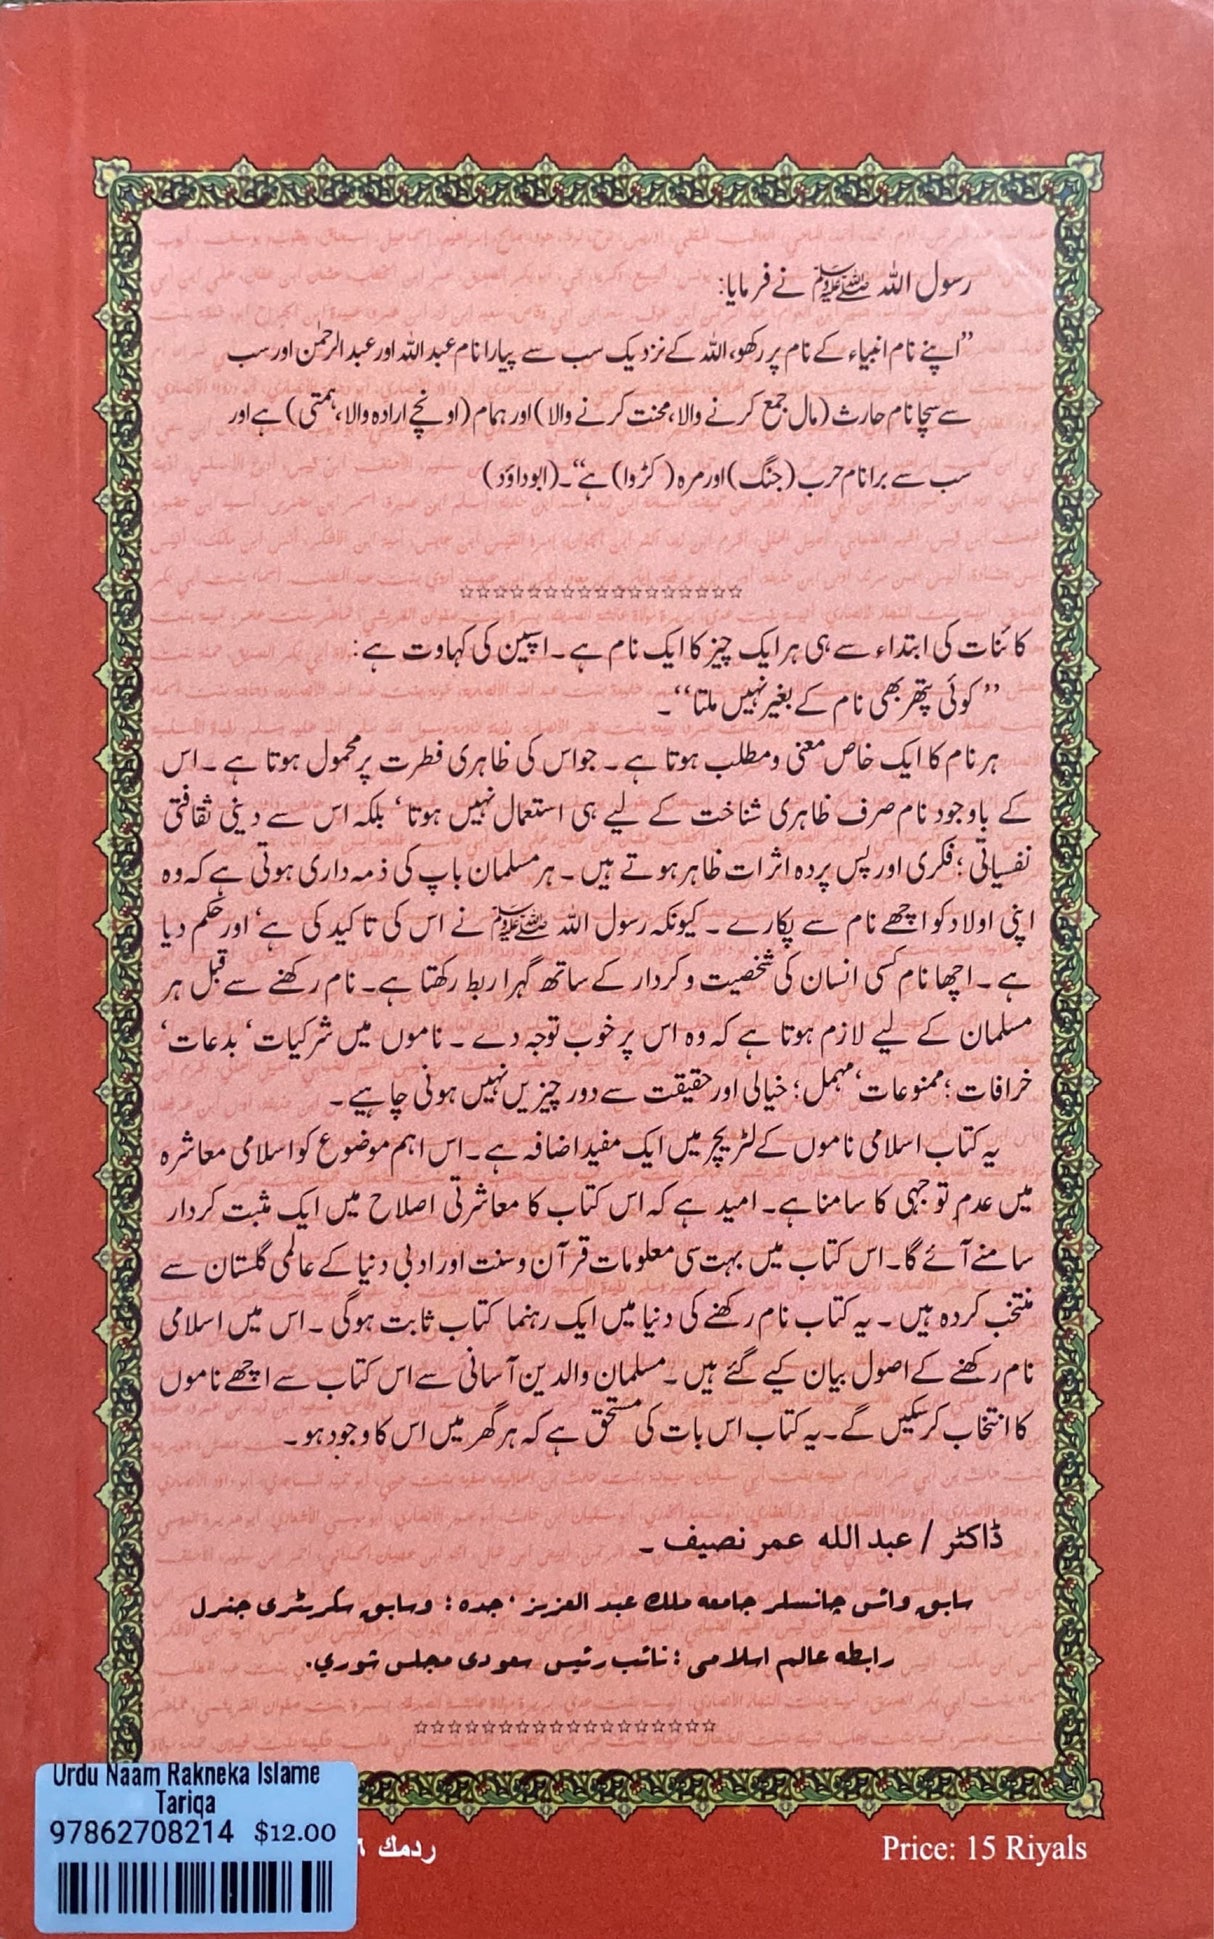 رسول اللہ ﷺ نے فرمایا:
”اپنے نام انبیاء کے نام پر رکھو، اللہ کے نزدیک سب سے پیارا نام عبد اللہ اور عبد الرحمٰن اور سب
سے سچا نام حارث (مال جمع کرنے والا، محنت کرنے والا) اور ہمام (اونچے ارادہ والا، ہمتی) ہے اور
سب سے برا نام حرب (جنگ) اور مرہ (کڑوا) ہے“۔ (ابوداؤد)
☆☆☆☆☆☆☆☆☆☆☆☆☆☆☆☆☆☆
کائنات کی ابتداء سے ہی ہر ایک چیز کا ایک نام ہے۔ اسپین کی کہاوت ہے:
”کوئی پتھر بھی نام کے بغیر نہیں ملتا“۔
ہر نام کا ایک خاص معنی و مطلب ہوتا ہے۔ جو اس کی ظاہری فطرت پر محمول ہوتا ہے۔ اس
کے باوجود نام صرف ظاہری شناخت کے لیے ہی استعمال نہیں ہوتا‘ بلکہ اس سے دینی ثقافتی
نفسیاتی؛ فکری اور پس پردہ اثرات ظاہر ہوتے ہیں۔ ہر مسلمان باپ کی ذمہ داری ہوتی ہے کہ وہ
اپنی اولاد کو اچھے نام سے پکارے۔ کیونکہ رسول اللہ ﷺ نے اس کی تاکید کی ہے‘ اور حکم دیا
ہے۔ اچھا نام کسی انسان کی شخصیت و کردار کے ساتھ گہرا ربط رکھتا ہے۔ نام رکھنے سے قبل ہر
مسلمان کے لیے لازم ہوتا ہے کہ وہ اس پر خوب توجہ دے۔ ناموں میں شرکیات‘ بدعات‘
خرافات؛ ممنوعات‘ مہمل؛ خیالی اور حقیقت سے دور چیزیں نہیں ہونی چاہیے۔
یہ کتاب اسلامی ناموں کے لٹریچر میں ایک مفید اضافہ ہے۔ اس اہم موضوع کو اسلامی معاشرہ
میں عدم توجہی کا سامنا ہے۔ امید ہے کہ اس کتاب کا معاشرتی اصلاح میں ایک مثبت کردار
سامنے آئے گا۔ اس کتاب میں بہت سی معلومات قرآن و سنت اور ادبی دنیا کے عالمی گلستان سے
منتخب کردہ ہیں۔ یہ کتاب نام رکھنے کی دنیا میں ایک رہنما کتاب ثابت ہوگی۔ اس میں اسلامی
نام رکھنے کے اصول بیان کیے گئے ہیں۔ مسلمان والدین آسانی سے اس کتاب سے اچھے ناموں
کا انتخاب کر سکیں گے۔ یہ کتاب اس بات کی مستحق ہے کہ ہر گھر میں اس کا وجود ہو۔
ڈاکٹر / عبد اللہ عمر نصیف ۔
سابق وائس چانسلر جامعہ ملک عبد العزیز ، جدہ ؛ وسابق سکریٹری جنرل
رابطہ عالم اسلامی ؛ نائب رئیس سعودی مجلس شوری.
☆☆☆☆☆☆☆☆☆☆☆☆☆☆☆☆☆☆
Urdu Naam Rakneka Islame
Tariqa
97862708214 $12.00
ردمك ٦
Price: 15 Riyals